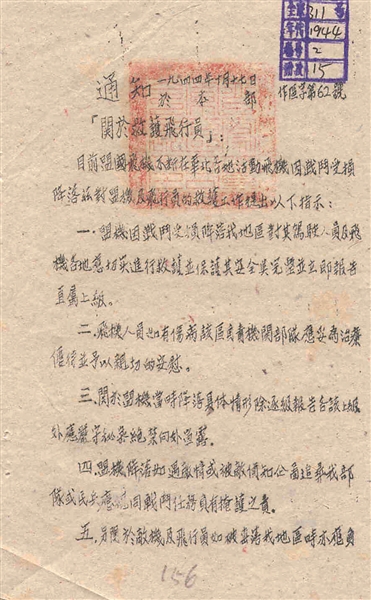 311
1944
2
15
通知
一九四四年十月十七日
於本部
作區字第62號
「關於救護飛行員」：
目前盟國飛機不斷在華北各地活動飛機因戰鬥受損
降落茲對盟機及飛行員的救護工作提出以下指示：
一．盟機因戰鬥受損降落我地區對其駕駛人員及飛
機各地應切實進行救護並保護其安全與完整並立即報告
直屬上級。
二．飛機人員如有傷病該區負責機關部隊應妥為治療
優待並予以親切的安慰。
三．關於盟機當時降落具体情形除逐級報告各該上級
外應嚴守祕密絕禁向外宣露。
四．盟機降落如遇敵情或被敵偽如企圖追尋我部
隊或民兵應 因戰鬥任務負有掩護之責。
五．另關於敵機及飛行員如被擊落我地區時亦應負
156